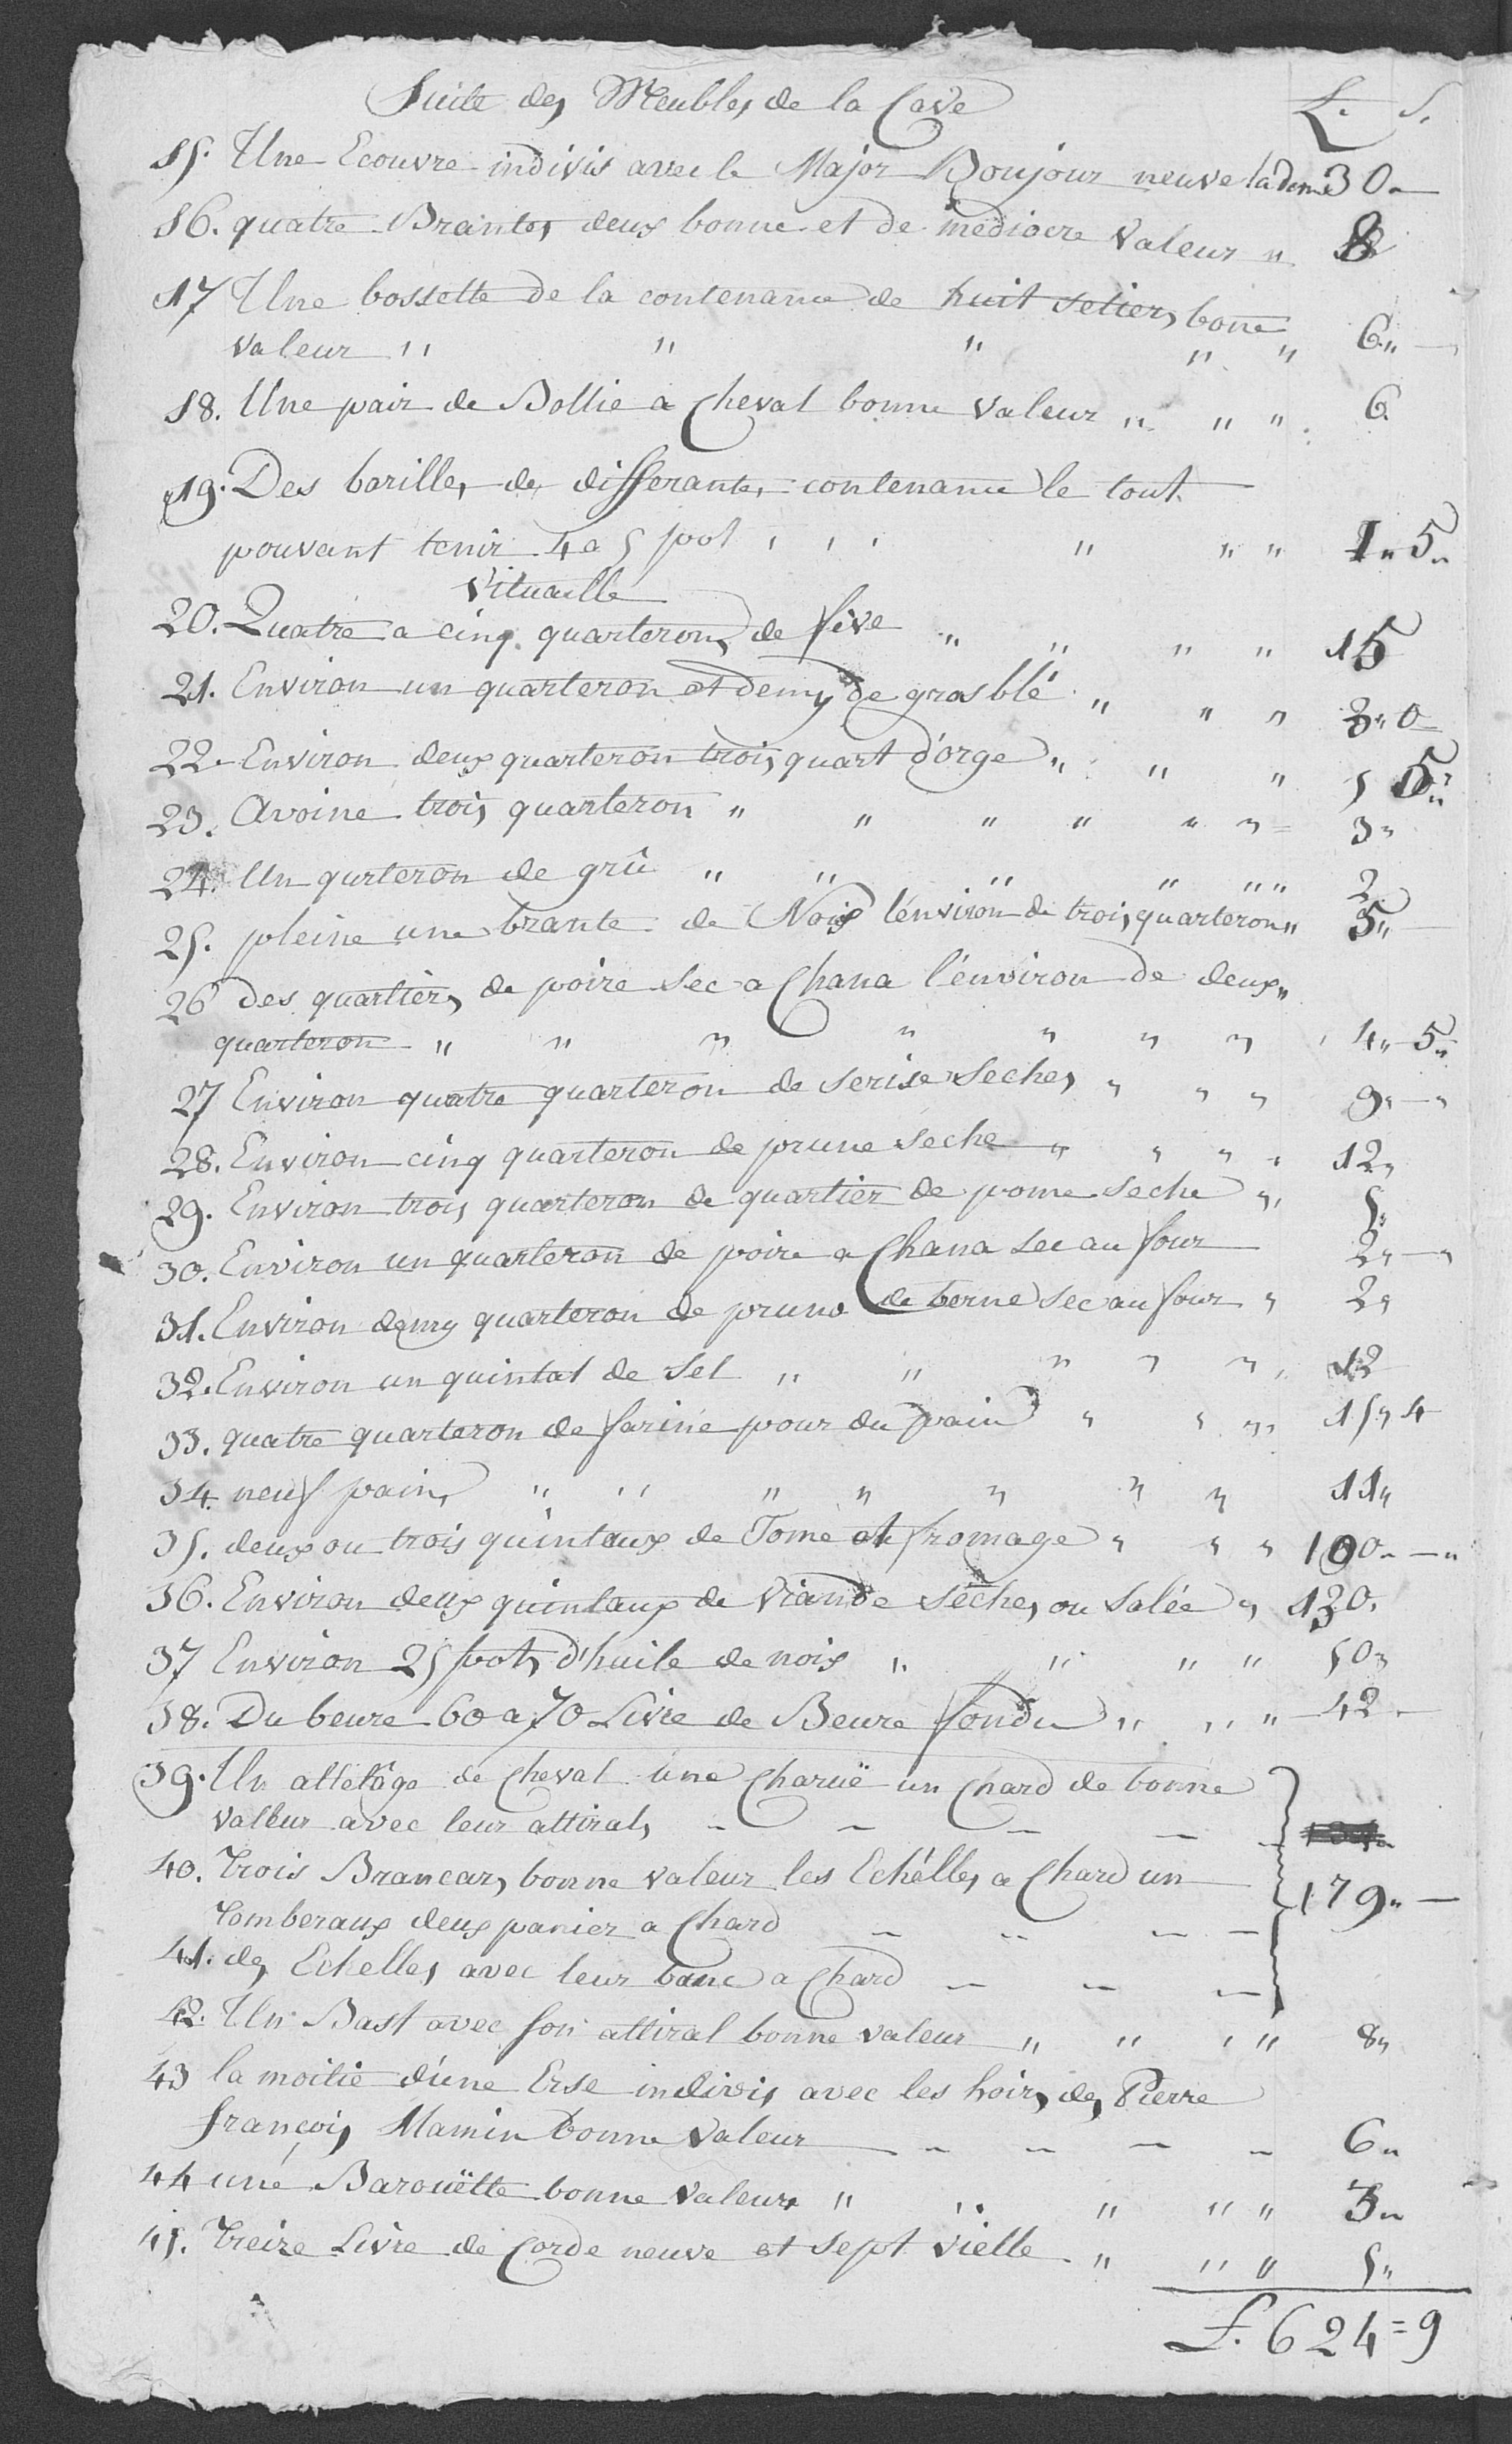 Suite des Meubles de la Cave L. S.
15. Une Ecouvre indivis avec le Major Boujour neuve la dem 30.—
16. quatre Brantes deux bonne et de mediocre Valeur " 8
17 Une bossette de la contenance de huit setiers bone
Valeur " " " " " 6."—
18. Une pair de Bollie a Cheval bonne Valeur " " " 6
19. Des barilles de differantes contenance le tout
pouvant tenir 4 a 5 pot , , , " " " 1" 5"
Vituaille
20. Quatre a cinq quarterons de féve " " " " 15
21. Environ un quarteron et demy de gros blé " " " 3" 0
22. Environ deux quarteron trois quart d'orge " " " 5 5"
23. Avoine trois quarteron " " " " " " 3"
24. Un qurteron de grû " " " " " " 2
25. pleine une brante de Noix l'environ de trois quarteron " 5"—
26 des quartiers de poire sec a Chana l'environ de deux "
quarteron " " " " " " " 4" 5"
27 Environ quatre quarteron de serise seches " " " 9"—"
28. Environ cinq quarteron de prune seche " " " " 12"
29. Environ trois quarteron de quartier de pome seche " 5"
30. Environ un quarteron de poire a Chana sec au four 2"—"
31. Environ demy quarteron de prune de berne sec au four " 2"
32. Environ un quintal de Sel " " " " " 12
33. quatre quarteron de farine pour du pain " " " 15" 4
34. neuf pains " " " " " " " 11"
35. deux ou trois quintaux de Tome et fromage " " " 100"—"
36. Environ deux quintaux de Viande séches ou Salée " 130.
37 Environ 25 pots d'huile de noix " " " " 50"
38. Du beure 60 a 70 Livre de Beure fondu " " " 42—
39. Un attelâge de Cheval une Charuë un Chard de bonne
valeur avec leur attirals — — — — —
40. Trois Brancars bonne valeur les Echélles a Chard un 179"—
Tomberaux deux panier a Chard — — — —
41. des Echelles avec leur banc a Chard — — —
42. Un Bast avec son attiral bonne valeur " " " " 8"
43 la moitié d'une Erse indivis avec les hoirs des Pierre
françois Mamin bonne Valeur — — — — — 6"
44 une Barouëtte bonne valeur " " " " " 3"
45. Treize Livre de Corde neuve et sept vielle " " " 5"
£. 624=9